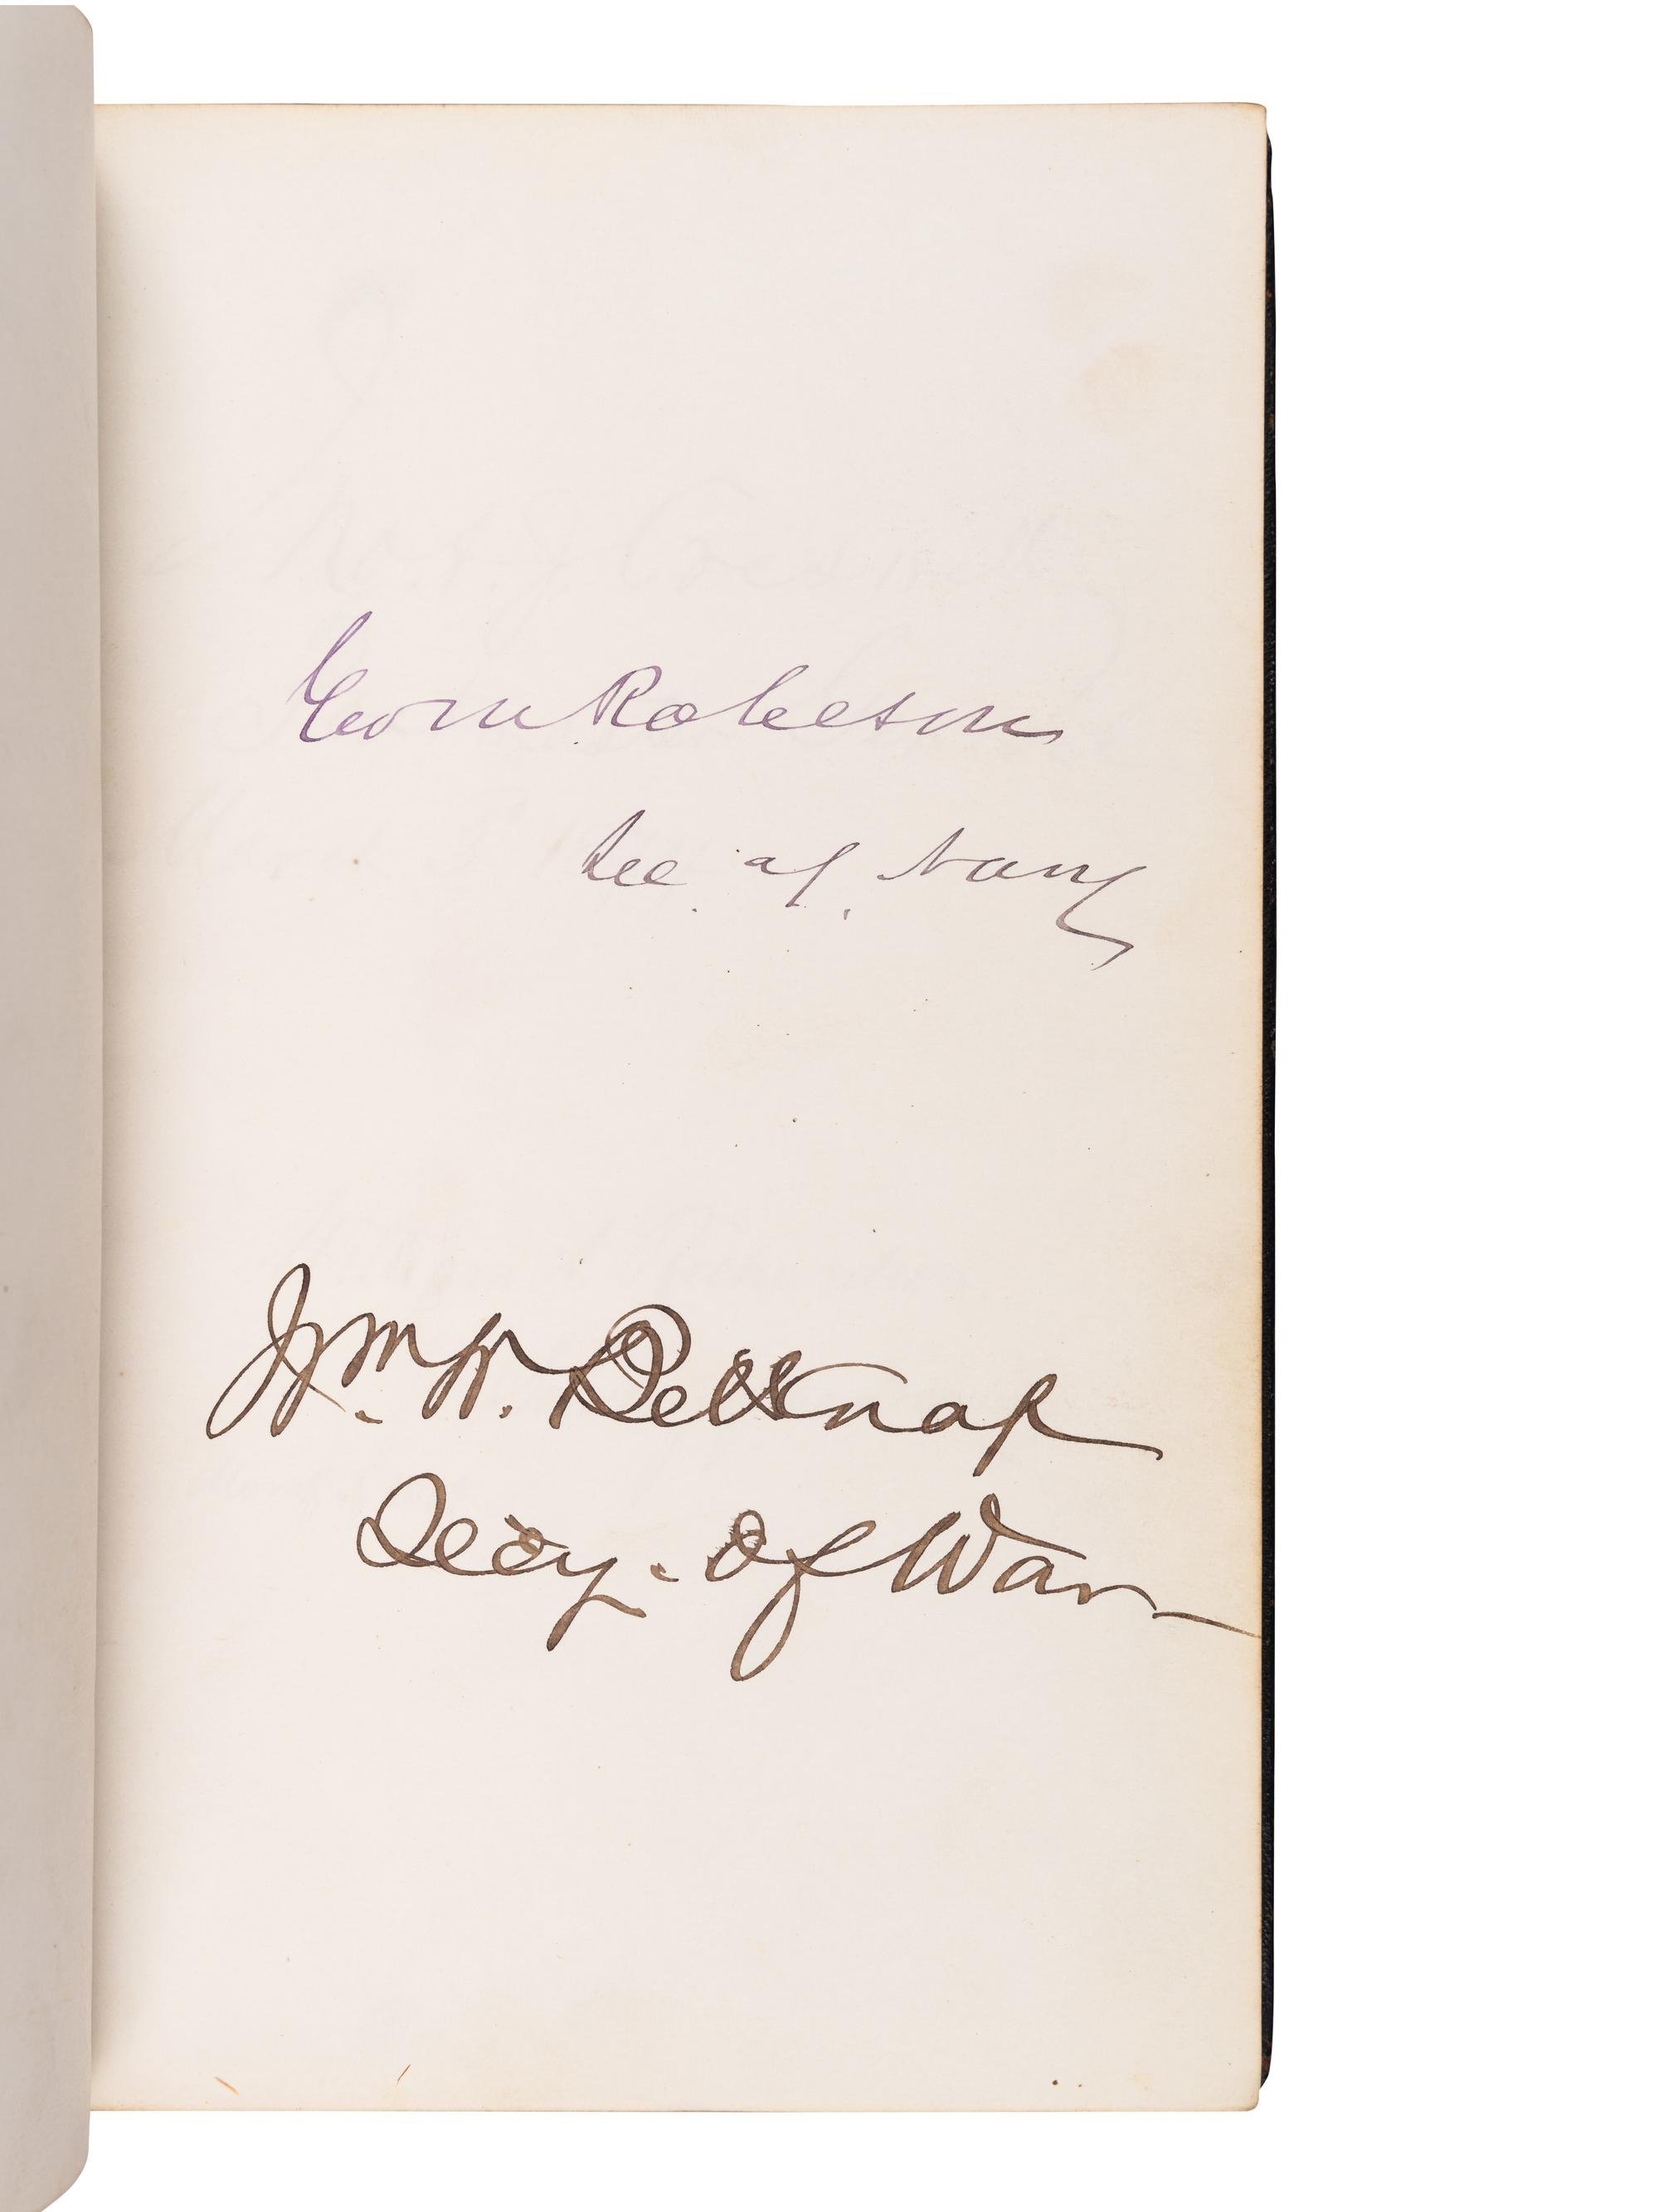 Geo M Robeson
Sec. of. Navy
Wm. W. Belknap
Secy. Of War